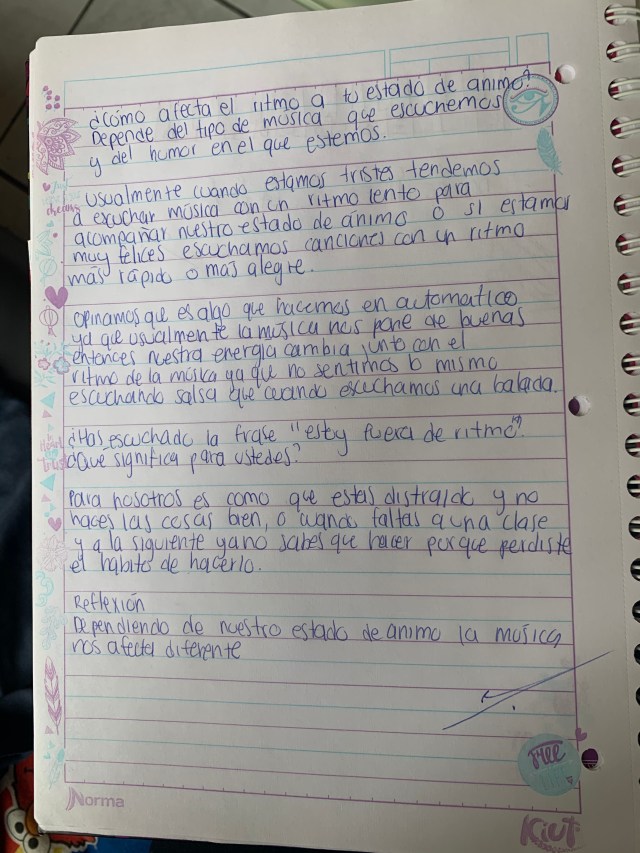 ¿Cómo afecta el ritmo a tu estado de animo?
Depende del tipo de música que escuchemos
y del humor en el que estemos.
Usualmente cuando estamos tristes tendemos
a escuchar música con un ritmo lento para
acompañar nuestro estado de ánimo o si estamos
muy felices escuchamos canciones con un ritmo
más rápido o mas alegre.
opinamos que es algo que hacemos en automatico
ya que usualmente la musica nos pone de buenas
entonces nuestra energía cambia junto con el
ritmo de la música ya que no sentimos lo mismo
escuchando salsa que cuando escuchamos una balada.
¿Has escuchado la frase "estoy fuera de ritmo"?
¿Qué significa para ustedes?
Para nosotros es como que estas distraido y no
haces las cosas bien, o cuando faltas a una clase
y a la siguiente ya no sabes que hacer porque perdiste
el habito de hacerlo.
Reflexión
Dependiendo de nuestro estado de animo la musica
nos afecta diferente
FREE
Norma
Kiut